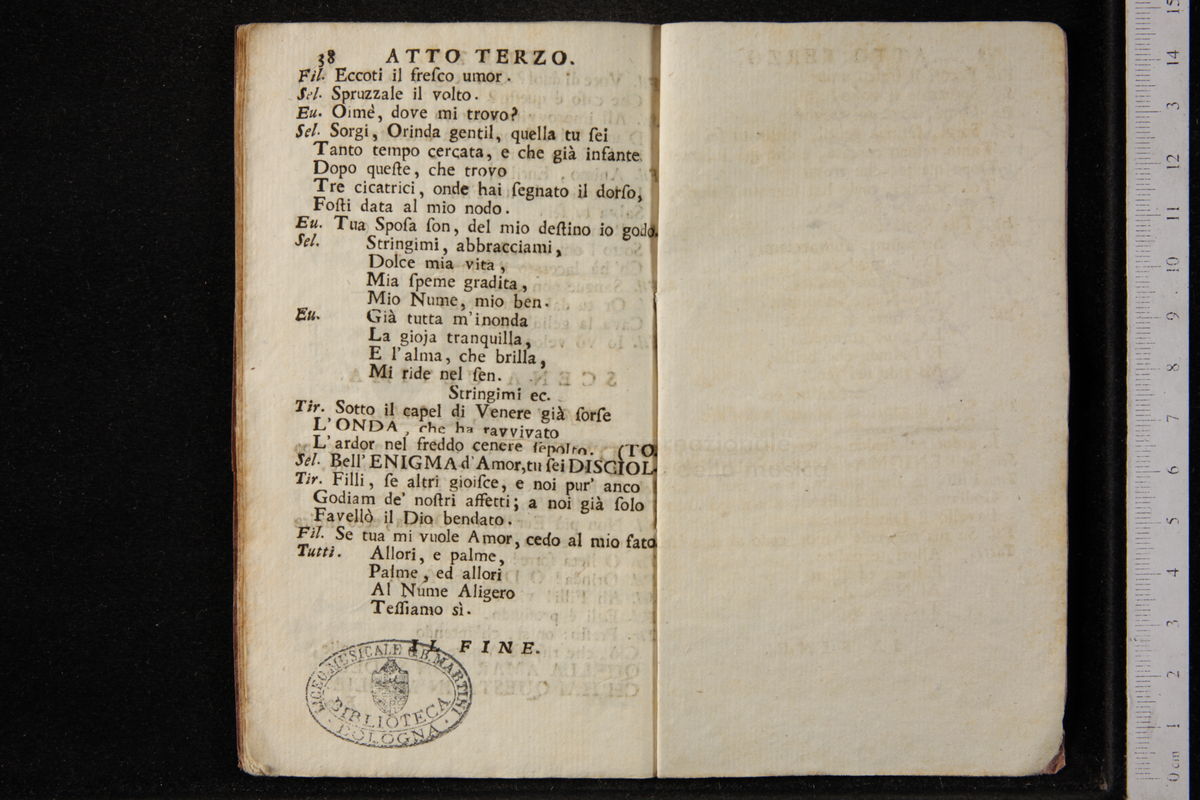 38 ATTO TERZO.
Fil. Eccoti il freſco umor.
Sel. Spruzzale il volto.
Eu. Oimè, dove mi trovo?
Sel. Sorgi, Orinda gentil, quella tu ſei
Tanto tempo cercata, e che già infante
Dopo queſte, che trovo
Tre cicatrici, onde hai ſegnato il dorſo,
Foſti data al mio nodo.
Eu. Tua Spoſa ſon, del mio deſtino io godo.
Sel. Stringimi, abbracciami,
Dolce mia vita,
Mia ſpeme gradita,
Mio Nume, mio ben.
Eu. Già tutta m'inonda
La gioja tranquilla,
E l'alma, che brilla,
Mi ride nel ſen.
Stringimi ec.
Tir. Sotto il capel di Venere già forſe
L'ONDA, che ha ravvivato
L'ardor nel freddo cenere ſepolto. (TO.
Sel. Bell'ENIGMA d'Amor, tu ſei DISCIOL-
Tir. Filli, ſe altri gioiſce, e noi pur' anco
Godiam de' noſtri affetti; a noi già ſolo
Favellò il Dio bendato.
Fil. Se tua mi vuole Amor, cedo al mio fato.
Tutti. Allori, e palme,
Palme, ed allori
Al Nume Aligero
Teſſiamo sì.
IL FINE.
LICEO MUSICALE G.B. MARTINI
BIBLIOTECA
BOLOGNA
0 cm 1 2 3 4 5 6 7 8 9 10 11 12 13 14 15